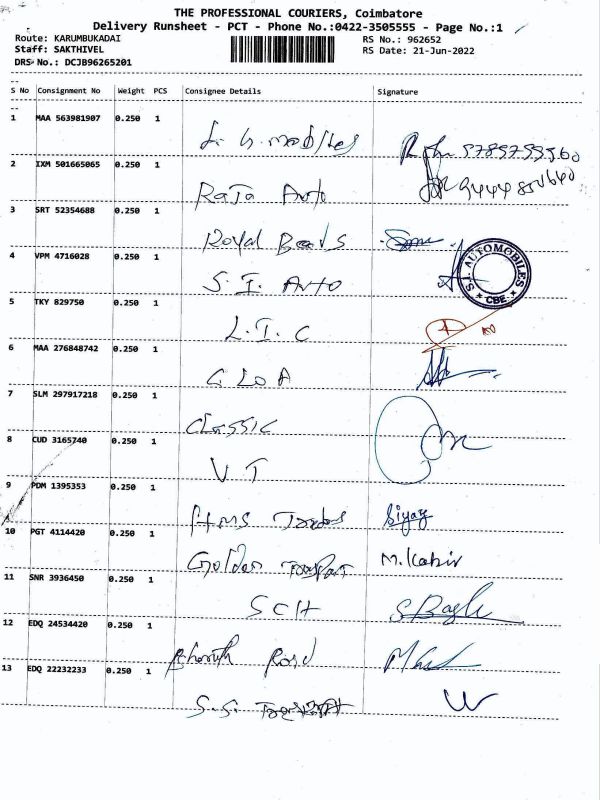 THE PROFESSIONAL COURIERS, Coimbatore
Delivery Runsheet - PCT - Phone No.:0422-3505555 - Page No.:1
Route: KARUMBUKADAI RS No.: 962652
Staff: SAKTHIVEL RS Date: 21-Jun-2022
DRS No.: DCJB96265201
S No Consignment No Weight PCS Consignee Details Signature
1 MAA 563981907 0.250 1
2 IXM 501665065 0.250 1
Raja Auto
3 SRT 52354688 0.250 1
Royal
4 VPM 4716028 0.250 1
S.I. Auto
S.I. AUTOMOBILES
CBE
5 TKY 829750 0.250 1
L.I.C
6 MAA 276848742 0.250 1
7 SLM 297917218 0.250 1
Classic
8 CUD 3165740 0.250 1
V T
9 PDM 1395353 0.250 1
HMS Siyaz
10 PGT 4114420 0.250 1
Golden M. Kabir
11 SNR 3936450 0.250 1
SCH
12 EDQ 24534420 0.250 1
Road
13 EDQ 22232233 0.250 1
S.S.